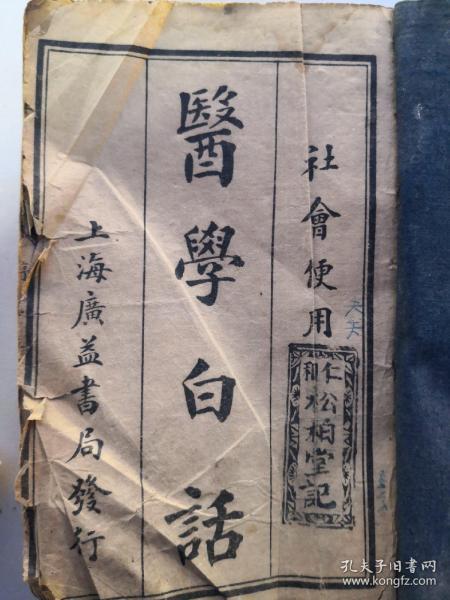 社會便用
天天
仁和
松柏堂記
醫學白話
上海廣益書局發行
孔夫子旧书网
www.kongfz.com